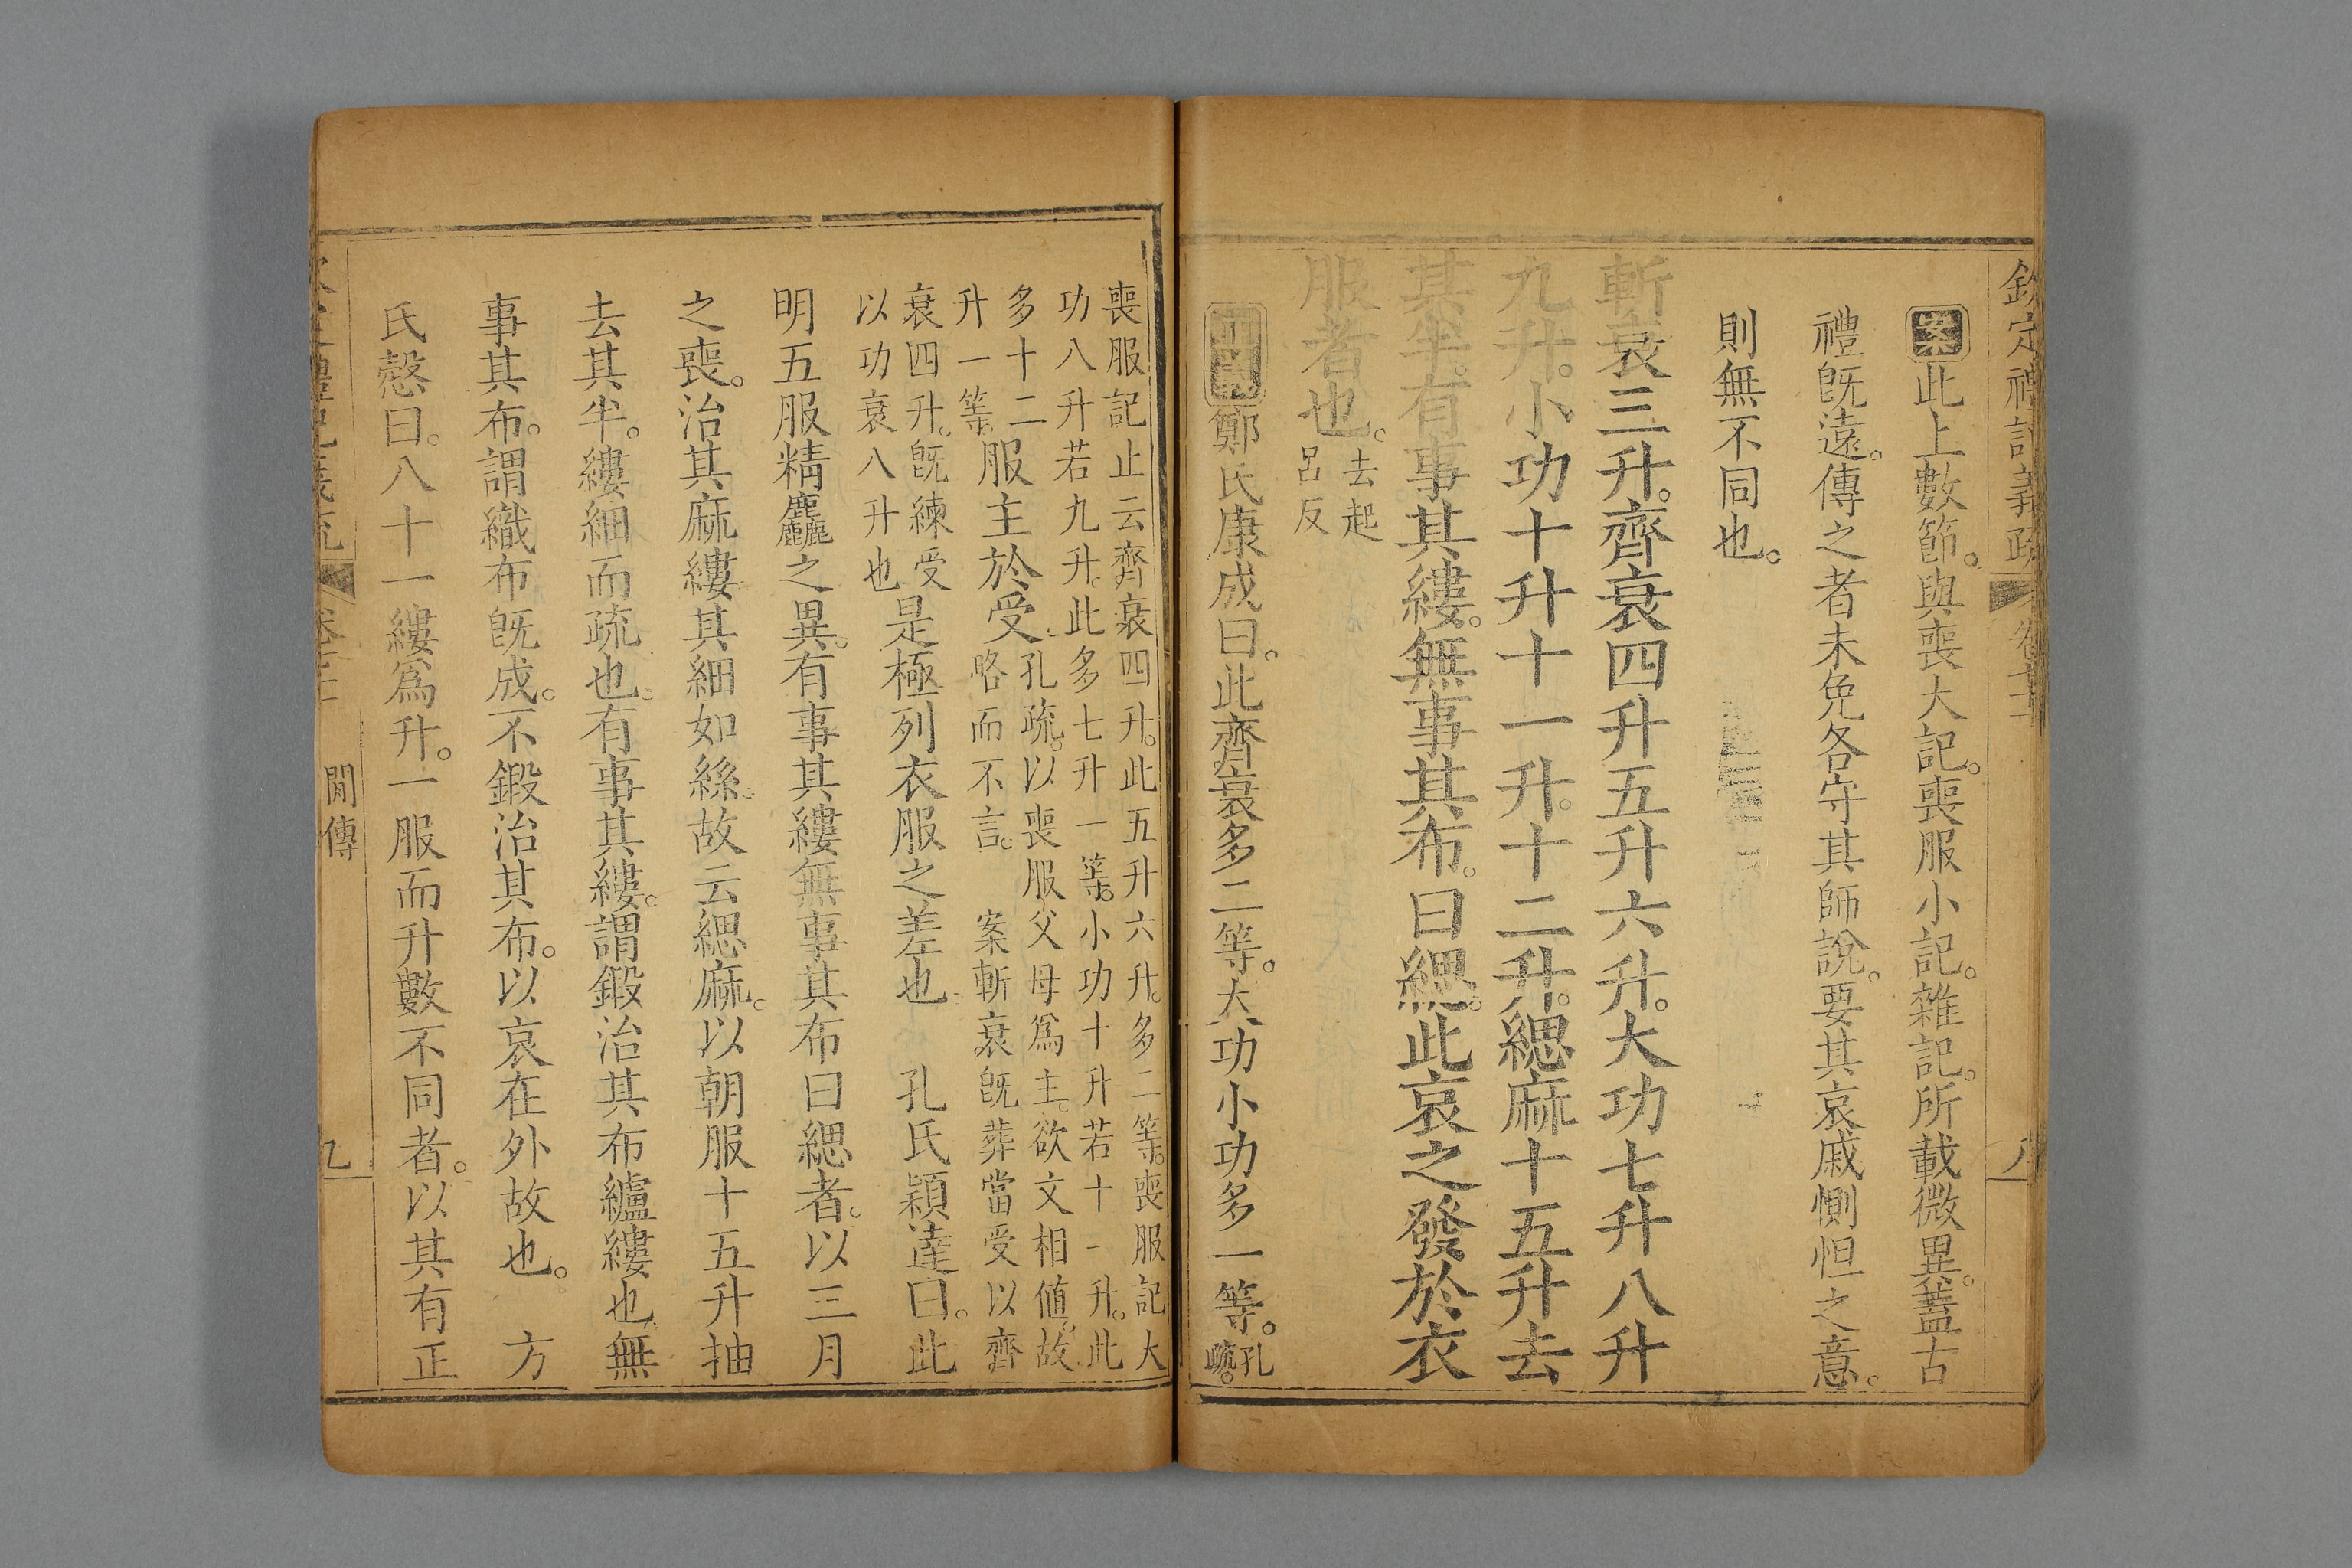 欽定禮記義疏 卷七十二 八
案此上數節。與喪大記。喪服小記。雜記。所載微異。蓋古
禮旣遠。傳之者未免各守其師說。要其哀戚惻怛之意。
則無不同也。
斬衰三升。齊衰四升五升六升。大功七升八升
九升。小功十升十一升。十二升。緦麻十五升去
其半。有事其縷。無事其布。曰緦。此哀之發於衣
服者也。去起
呂反
鄭氏康成曰。此齊衰多二等。大功小功多一等。孔
疏。
喪服記止云齊衰四升。此五升六升。多二等。喪服記大
功八升若九升。此多七升一等。小功十升若十一升。此
多十二
升一等。
服主於受。
孔疏。以喪服父母爲主。欲文相値。故
略而不言。 案斬衰旣葬當受以齊
衰四升。旣練受
以功衰八升也
是極列衣服之差也 孔氏穎達曰。此
明五服精麤之異。有事其縷無事其布曰緦者。以三月
之喪。治其麻縷其細如絲。故云緦麻。以朝服十五升抽
去其半。縷細而疏也。有事其縷。謂鍛治其布纑縷也。無
事其布。謂織布旣成。不鍛治其布。以哀在外故也。 方
氏慤曰。八十一縷爲升。一服而升數不同者。以其有正
閒傳